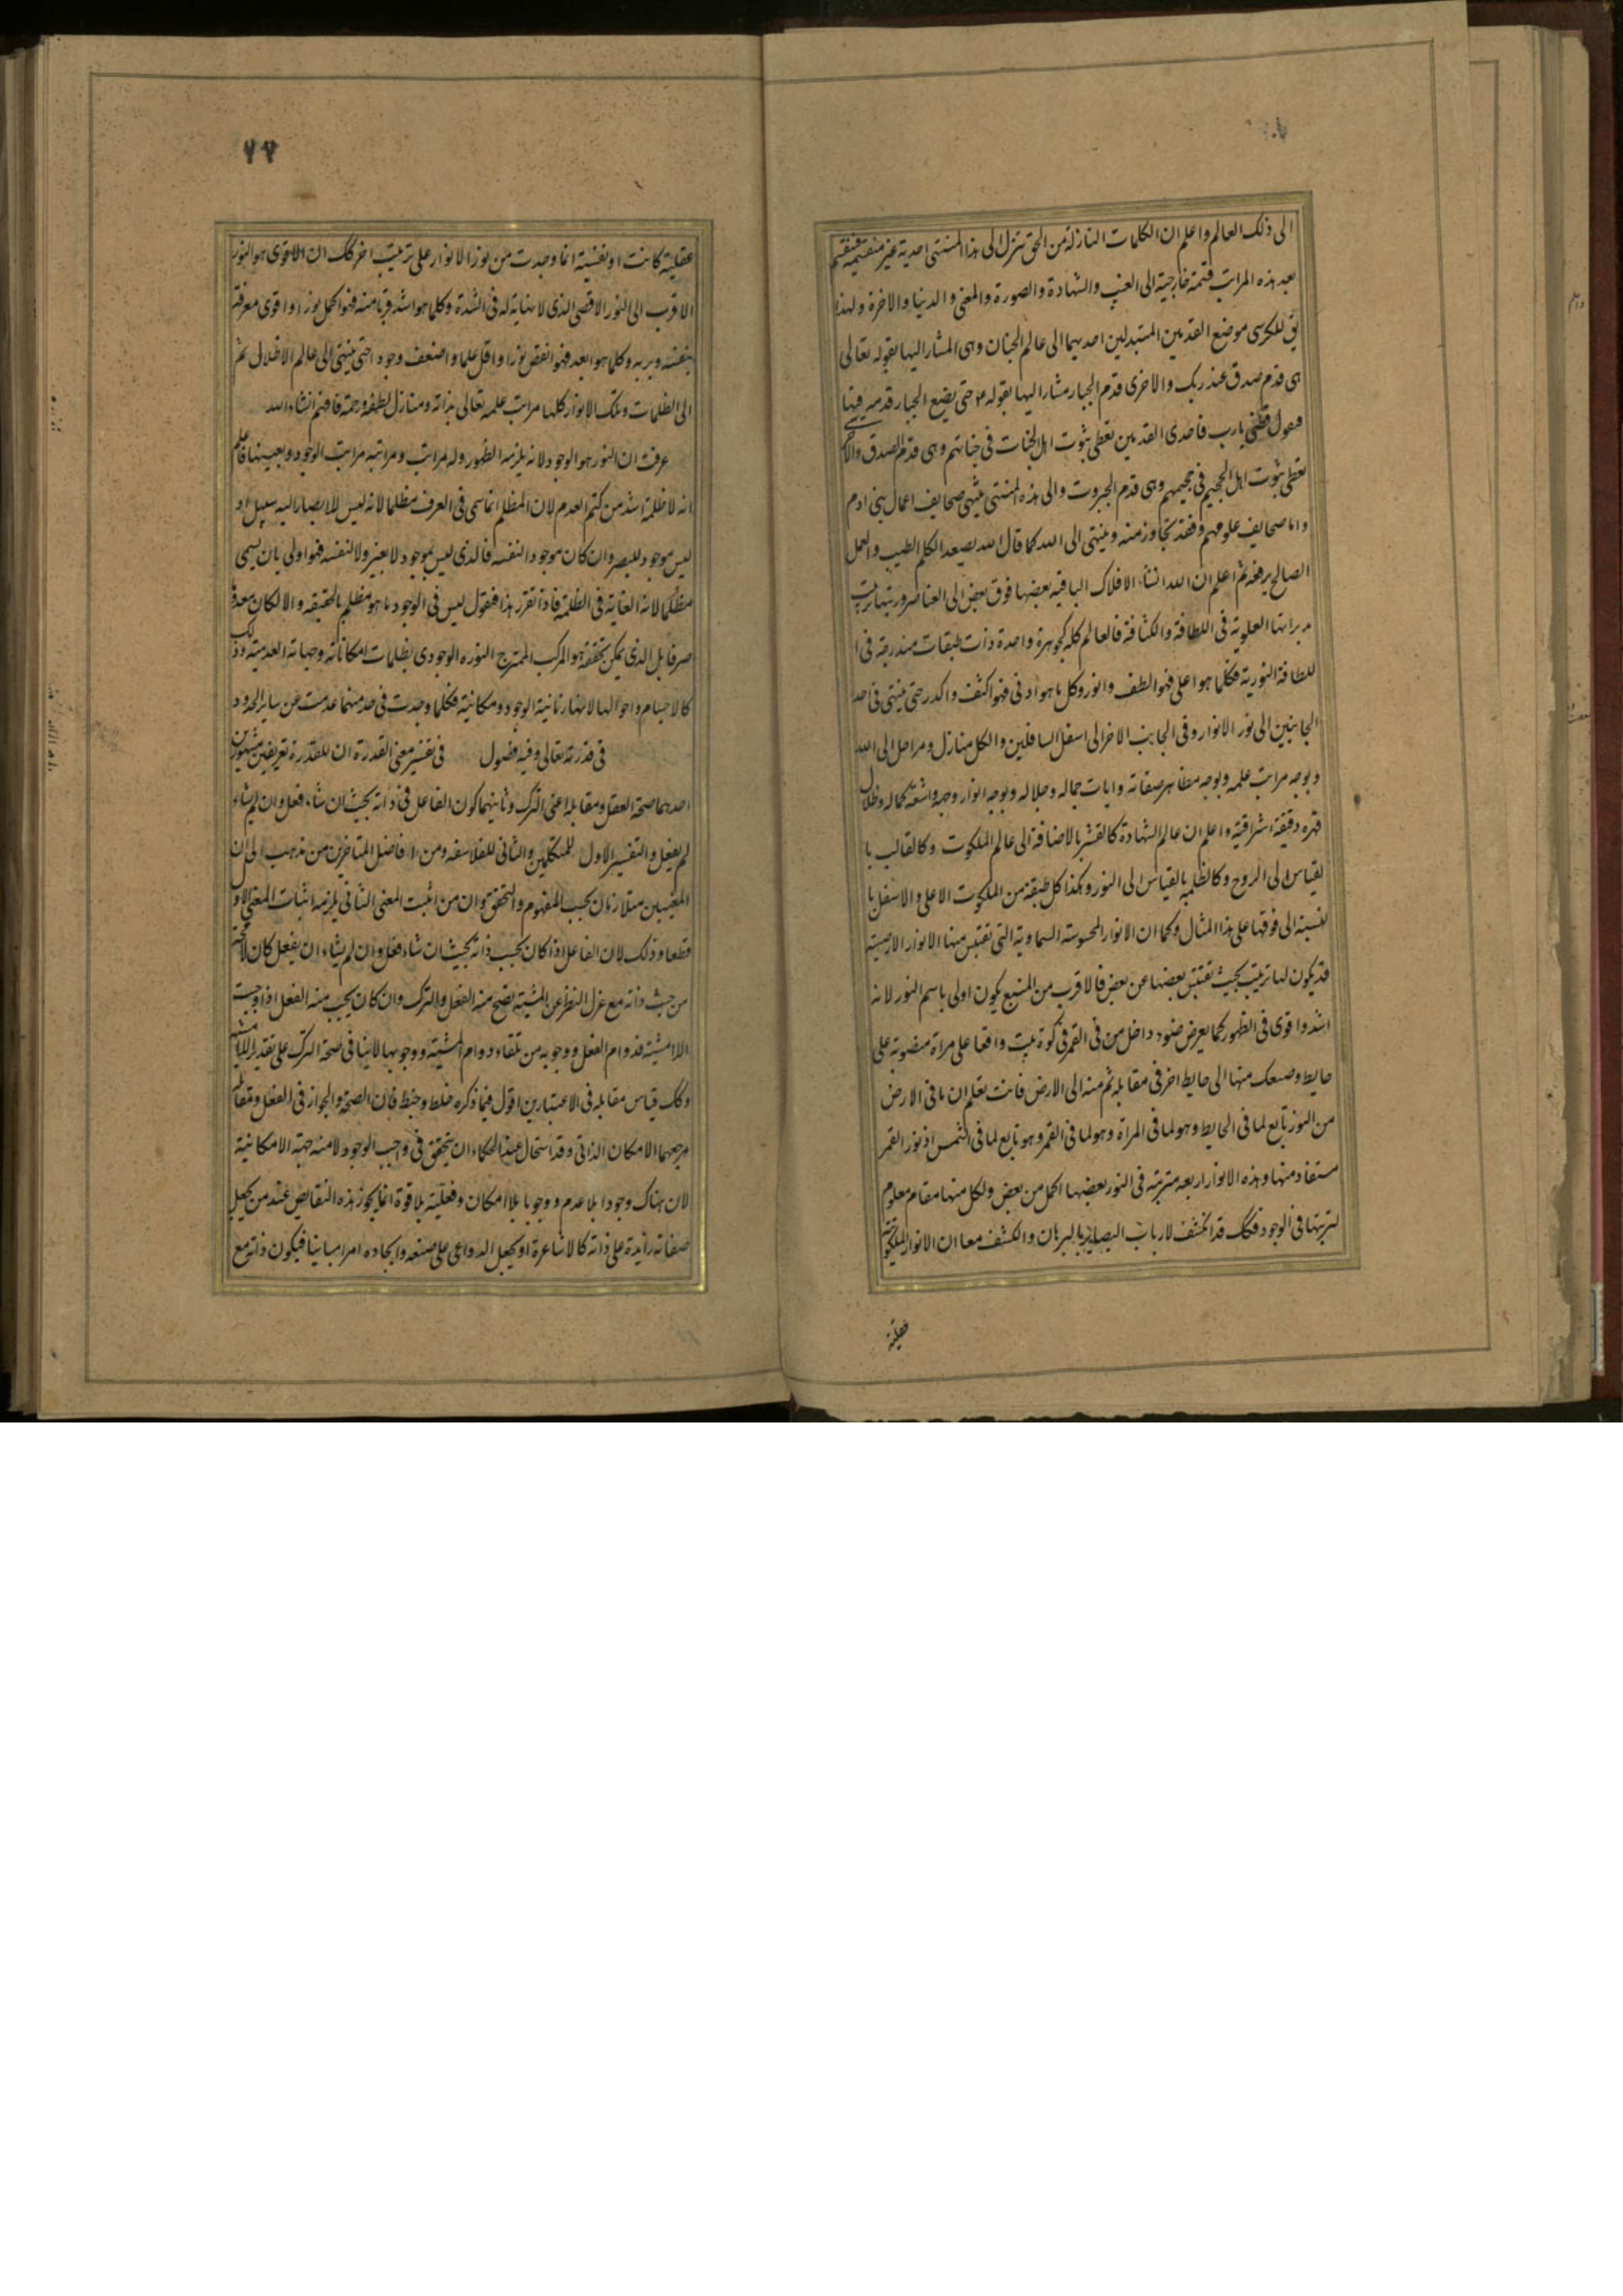 الى ذلك العالم واعلم ان الكلمات النازلة من الحق تنزل الى هذا المنتهى احدية غير منقسمة فتنقسم
بعد هذه المراتب قسمة خارجية الى الغيب والشهادة والصورة والمعنى والدنيا والاخرة ولهذا
يق للكرسى موضع القدمين المتبدلين احديهما الى عالم الجنان وهى المشار اليها بقوله تعالى
هى قدم صدق عند ربك والاخرى قدم الجبار مشار اليها بقوله حتى يضع الجبار قدميه فيها
فيقول قطنى يارب فاحدى القدمين تعطى ثبوت اهل الجنات فى جناتهم وهى قدم الصدق والاخرى
تعطى ثبوت اهل الجحيم فى جحيمهم وهى قدم الجبروت والى هذه المنتهى ينتهى صحايف اعمال بنى ادم
واما صحايف علومهم فقد تجاوز منه وينتهى الى الله كما قال الله يصعد الكلم الطيب والعمل
الصالح يرفعه ثم اعلم ان الله انشأ الافلاك الباقية بعضها فوق بعض الى العناصر ورتبها ترتيب
مدبراتها العلوية فى اللطافة والكثافة فالعالم كله كجوهرة واحدة ذات طبقات مندرجة فى ا
للطافة النورية فكلما هو اعلى فهو الطف وانور وكل ما هو ادنى فهو اكثف واكدر حتى ينتهى فى احد
الجانبين الى نور الانوار وفى الجانب الاخر الى اسفل السافلين والكل منازل ومراحل الى الله
وبوجه مراتب علمه وبوجه مظاهر صفاته وايات جماله وجلاله وبوجه انوار وجهه واشعة كماله وظلال
قهره دقيقة اشراقية واعلم ان عالم الشهادة كالقشر بالاضافة الى عالم الملكوت وكالقالب با
لقياس الى الروح وكالظلمة بالقياس الى النور وهكذا كل طبقة من الملكوت الاعلى والاسفل با
لنسبة الى فوقها على هذا المثال وكما ان الانوار المحسوسة السماوية التى تقتبس منها الانوار الارضية
قد يكون لها ترتيب بحيث تقتبس بعضها عن بعض فالاقرب من المنبع يكون اولى باسم النور لانه
اشد واقوى فى الظهور كما يعرض ضوء داخل من فى القمر فى كوة بيت واقعا على مراة منصوبة على
حايط وصعك منها الى حايط اخر فى مقابله ثم منه الى الارض فانت تعلم ان ما فى الارض
من النور تابع لما فى الحايط وهو لما فى المراة وهو لما فى القمر وهو تابع لما فى الشمس اذ نور القمر
مستفاد منها وهذه الانوار اربعة مترتبة فى النور بعضها اكمل من بعض ولكل منها مقام معلوم
لمرتبتها فى الوجود فكك قد انكشف لارباب البصاير بالبرهان والكشف معا ان الانوار الملكوتية
عقلية
٧٧
عقلية كانت او نفسية انما وجدت من نور الانوار على ترتيب اخر كك ان الاقوى هو النور
الاقرب الى النور الاقصى الذى لا نهاية له فى الشدة وكلما هو اشد قربا منه فهو اكمل نورا واقوى معرفة
بنفسه وبربه وكلما هو ابعد فهو انقص نورا واقل علما واضعف وجودا حتى ينتهى الى عالم الاظلال ثم
الى الظلمات وتلك الانوار كلها مراتب علمه تعالى بذاته ومنازل لطفه ورحمته فافهم انشاء الله
عرفت ان النور هو الوجود لانه يلزمه الظهور وله مراتب ومراتبه مراتب الوجود وبعينها فاعلم
انه لا ظلمة اشد من كتم العدم لان المظلم انما سمى فى العرف مظلما لانه ليس للابصار اليه سبيل اذ
ليس موجود للبصر وان كان موجودا لنفسه فالذى ليس بموجود لا لغيره ولا لنفسه فهو اولى بان يسمى
مظلما لانه الغاية فى الظلمة فاذا تقرر هذا فنقول ليس فى الوجود ما هو مظلم بالحقيقة والا لكان معدوما
صرفا بل الذى يمكن تحققه هو المركب الممتزج النوره الوجودى بظلمات امكاناته وجهاته العدمية وذلك
كالاجسام واحوالها لانها زمانية الوجود ومكانية فكلما وجدت فى حد منهما عدمت عن ساير الحدود
فى قدرته تعالى وفيه فصول فى تفسير معنى القدرة ان للقدرة تعريفين مشهورين
احدهما صحة الفعل ومقابله اعنى الترك وثانيهما كون الفاعل فى ذاته بحيث ان شاء فعل وان لم يشاء
لم يفعل والتفسير الاول للمتكلمين والثانى للفلاسفه ومن افاضل المتاخرين من ذهب الى ان
المعنيين متلازمان بحسب المفهوم والتحقق وان من اثبت المعنى الثانى يلزمه اثبات المعنى الاول
قطعا وذلك لان الفاعل اذا كان بحسب ذاته بحيث ان شاء فعل وان لم يشاء ان يفعل كان لا محة
من حيث ذاته مع عزل النظر عن المشية يصح منه الفعل والترك وان كان يجب منه الفعل اذا وجبت
الا مشيته فدوام الفعل ووجوبه من تلقاء دوام المشية ووجوبها لا ينافى صحة الترك على تقدير اللامشية
وكك قياس مقابله فى الاعتبارين اقول فيما ذكره خلط وخبط فان الصحة والجواز فى الفعل ومقابله
مرجعهما الامكان الذاتى وقد استحال عند الحكماء ان يتحقق فى واجب الوجود لا منه جهة الامكانية
لان هناك وجودا بلا عدم ووجوبا بلا امكان وفعلية بلا قوة انما يجوز هذه النقايص عند من يجعل
صفاته زايدة على ذاته كالاشاعرة او يجعل الداعى على صنعه وايجاده امرا مباينا فيكون ذاته مع